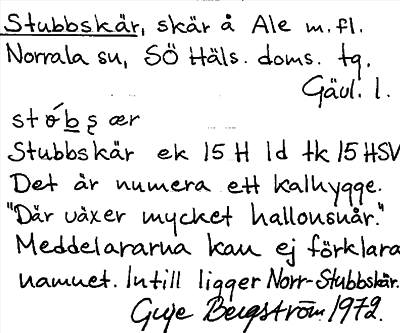 Stubbskär, skär å Ale m.fl.
Norrala sn, SÖ Häls. doms. tg.
Gävl. l.
stó̱ḇş ær
Stubbskär ek 15 H 1d tk 15 HSV
Det är numera ett kalhygge.
"Där växer mycket hallonsnår."
Meddelararna kan ej förklara
namnet. Intill ligger Norr-Stubbskär.
Guje Bergström 1972.